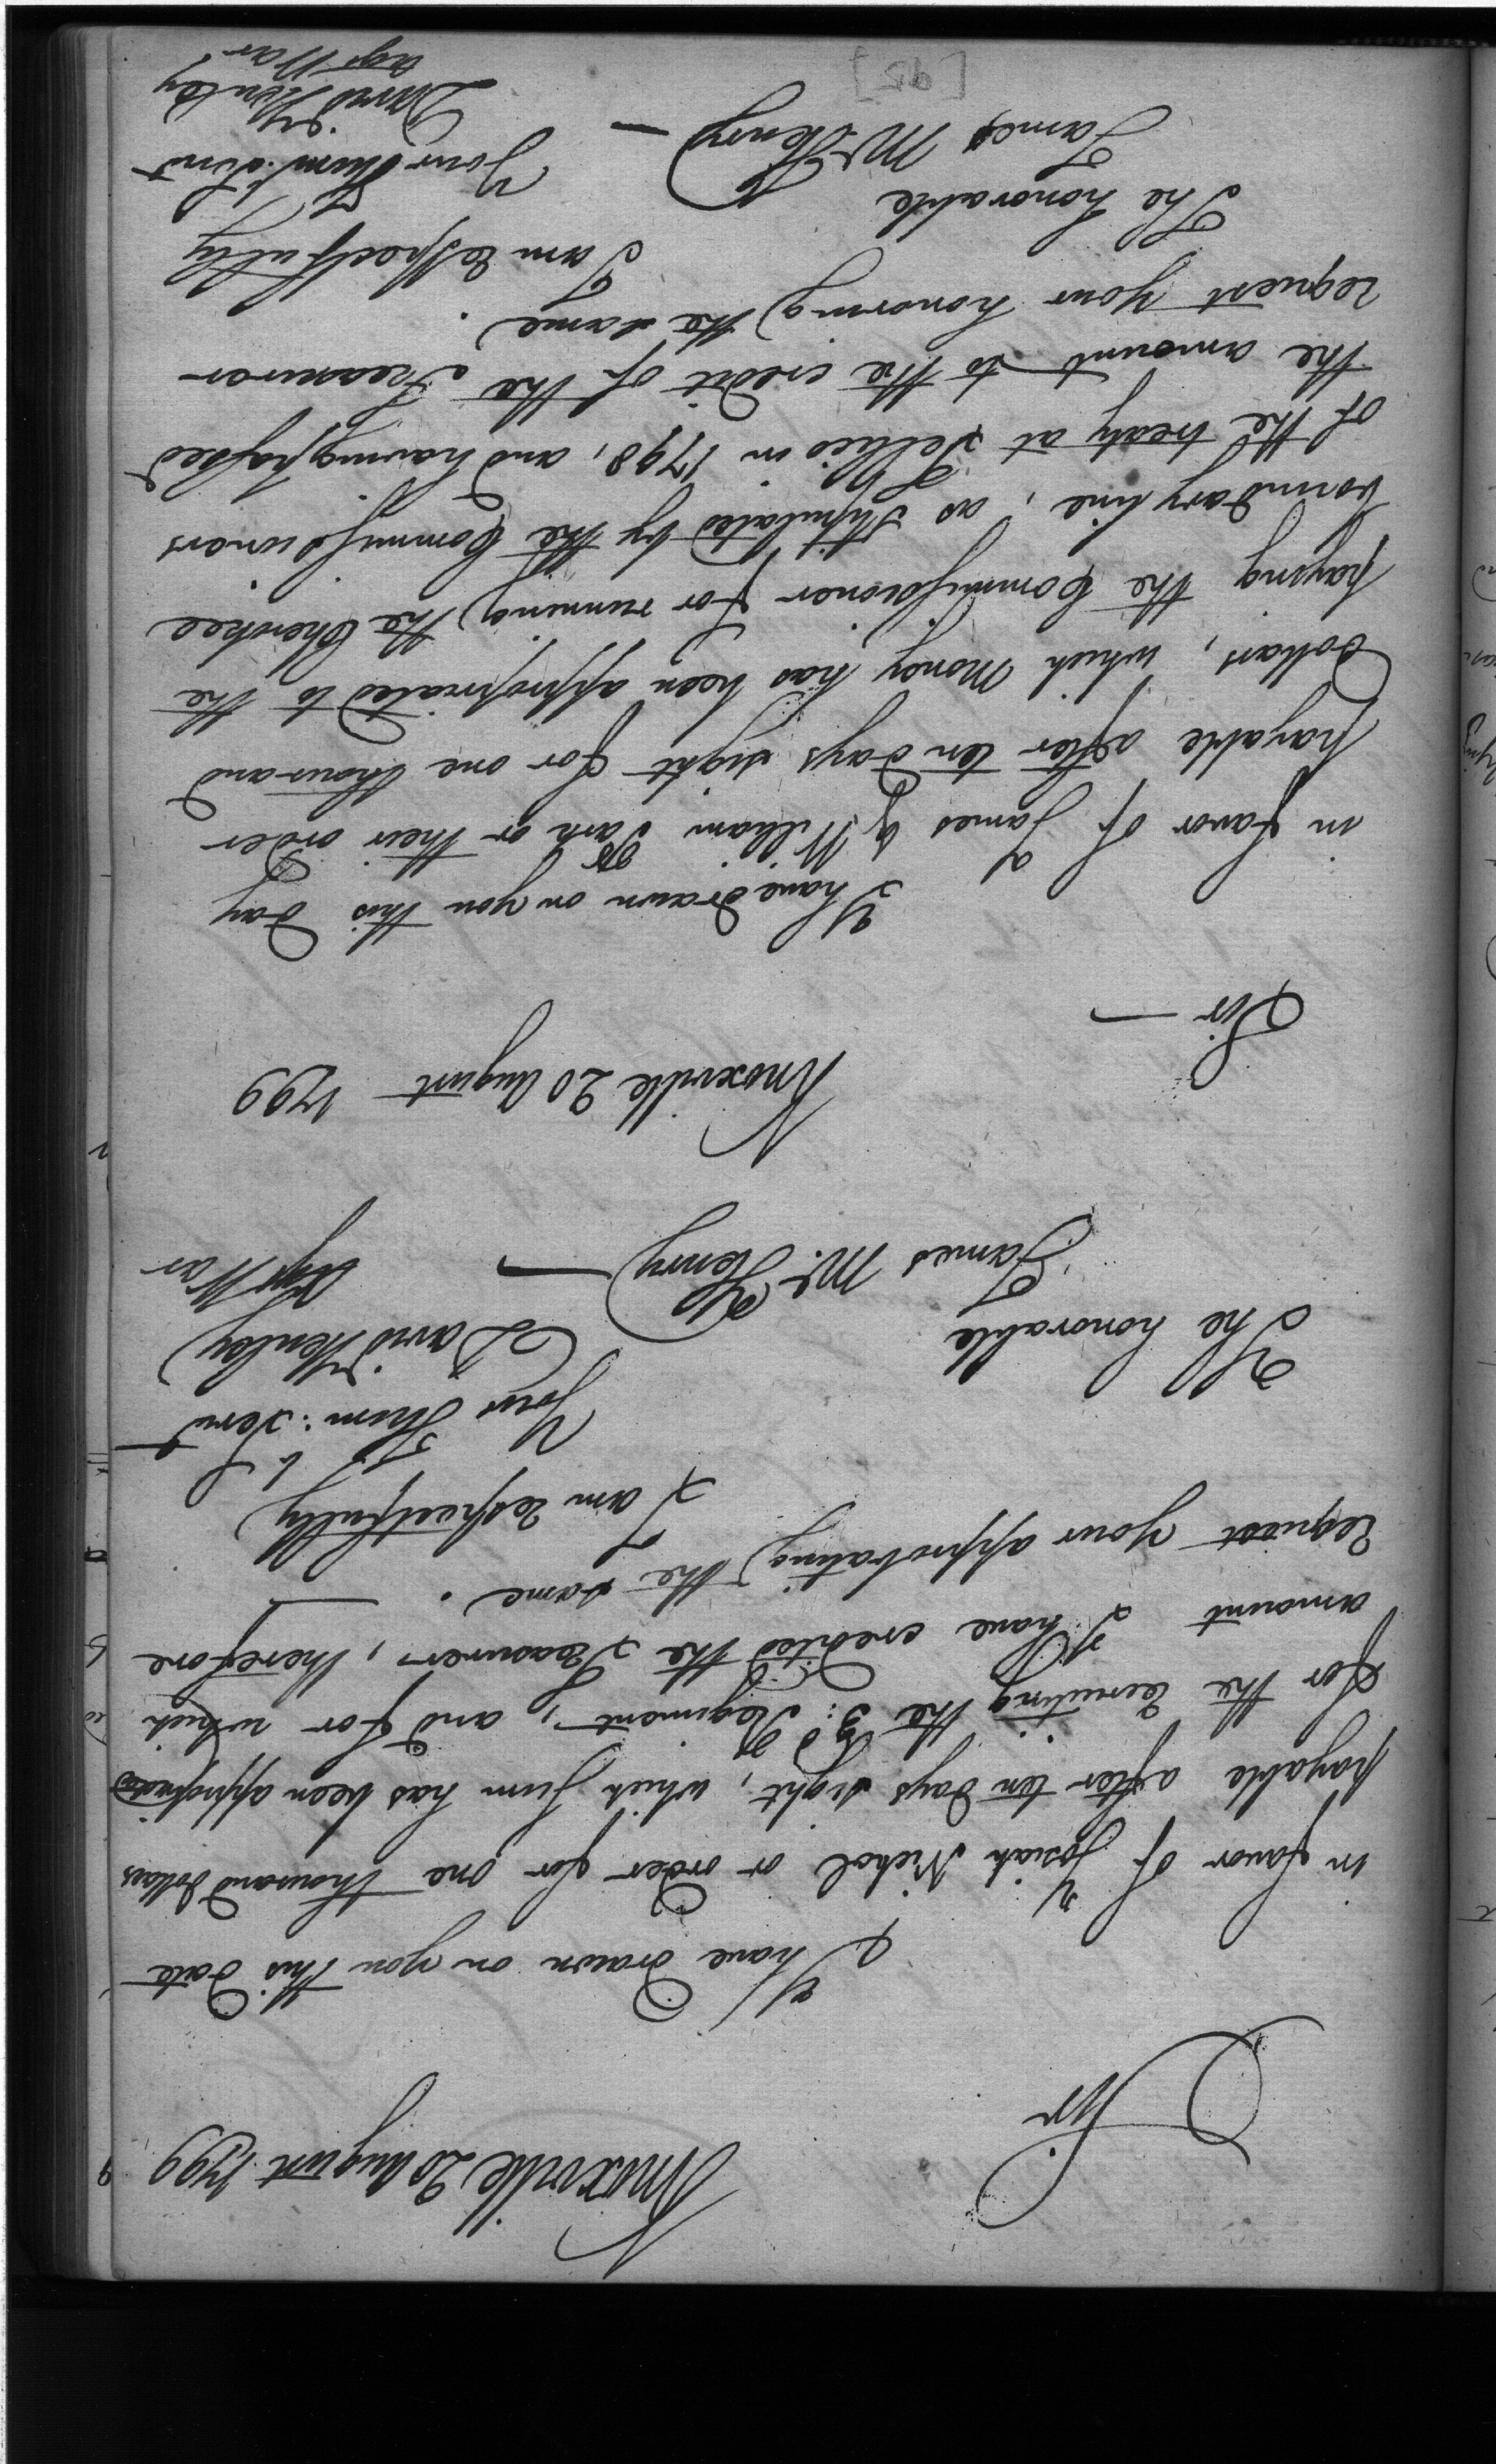 Knoxville 20 August 1799
Sir
I have drawn on you this date
in favor of Josiah Nichol or order for one thousand dollars
payable after ten days sight, which sum has been appropriated
for the recruiting the 3d: Regiment, and for which
amount I have credited the Treasurer, therefore
request your approbating the same.
I am respectfully
Your Hum: Servt
David Henley
Agt War
The honorable
James McHenry
Knoxville 20 August 1799
Sir
I have drawn on you this day
in favor of James & William Park or their order
payable after ten days sight for one thousand
Dollars, which Money has been appropriated to the
paying the Commissioner for running the Cherokee
boundary line, as stipulated by the Commissioners
of the treaty at Tellico in 1798, and having passed
the amount to the credit of the Treasuror
request your honoring the same.
I am respectfully
Your Hum: Servt
David Henley
agt War
The honorable
James McHenry
[92]